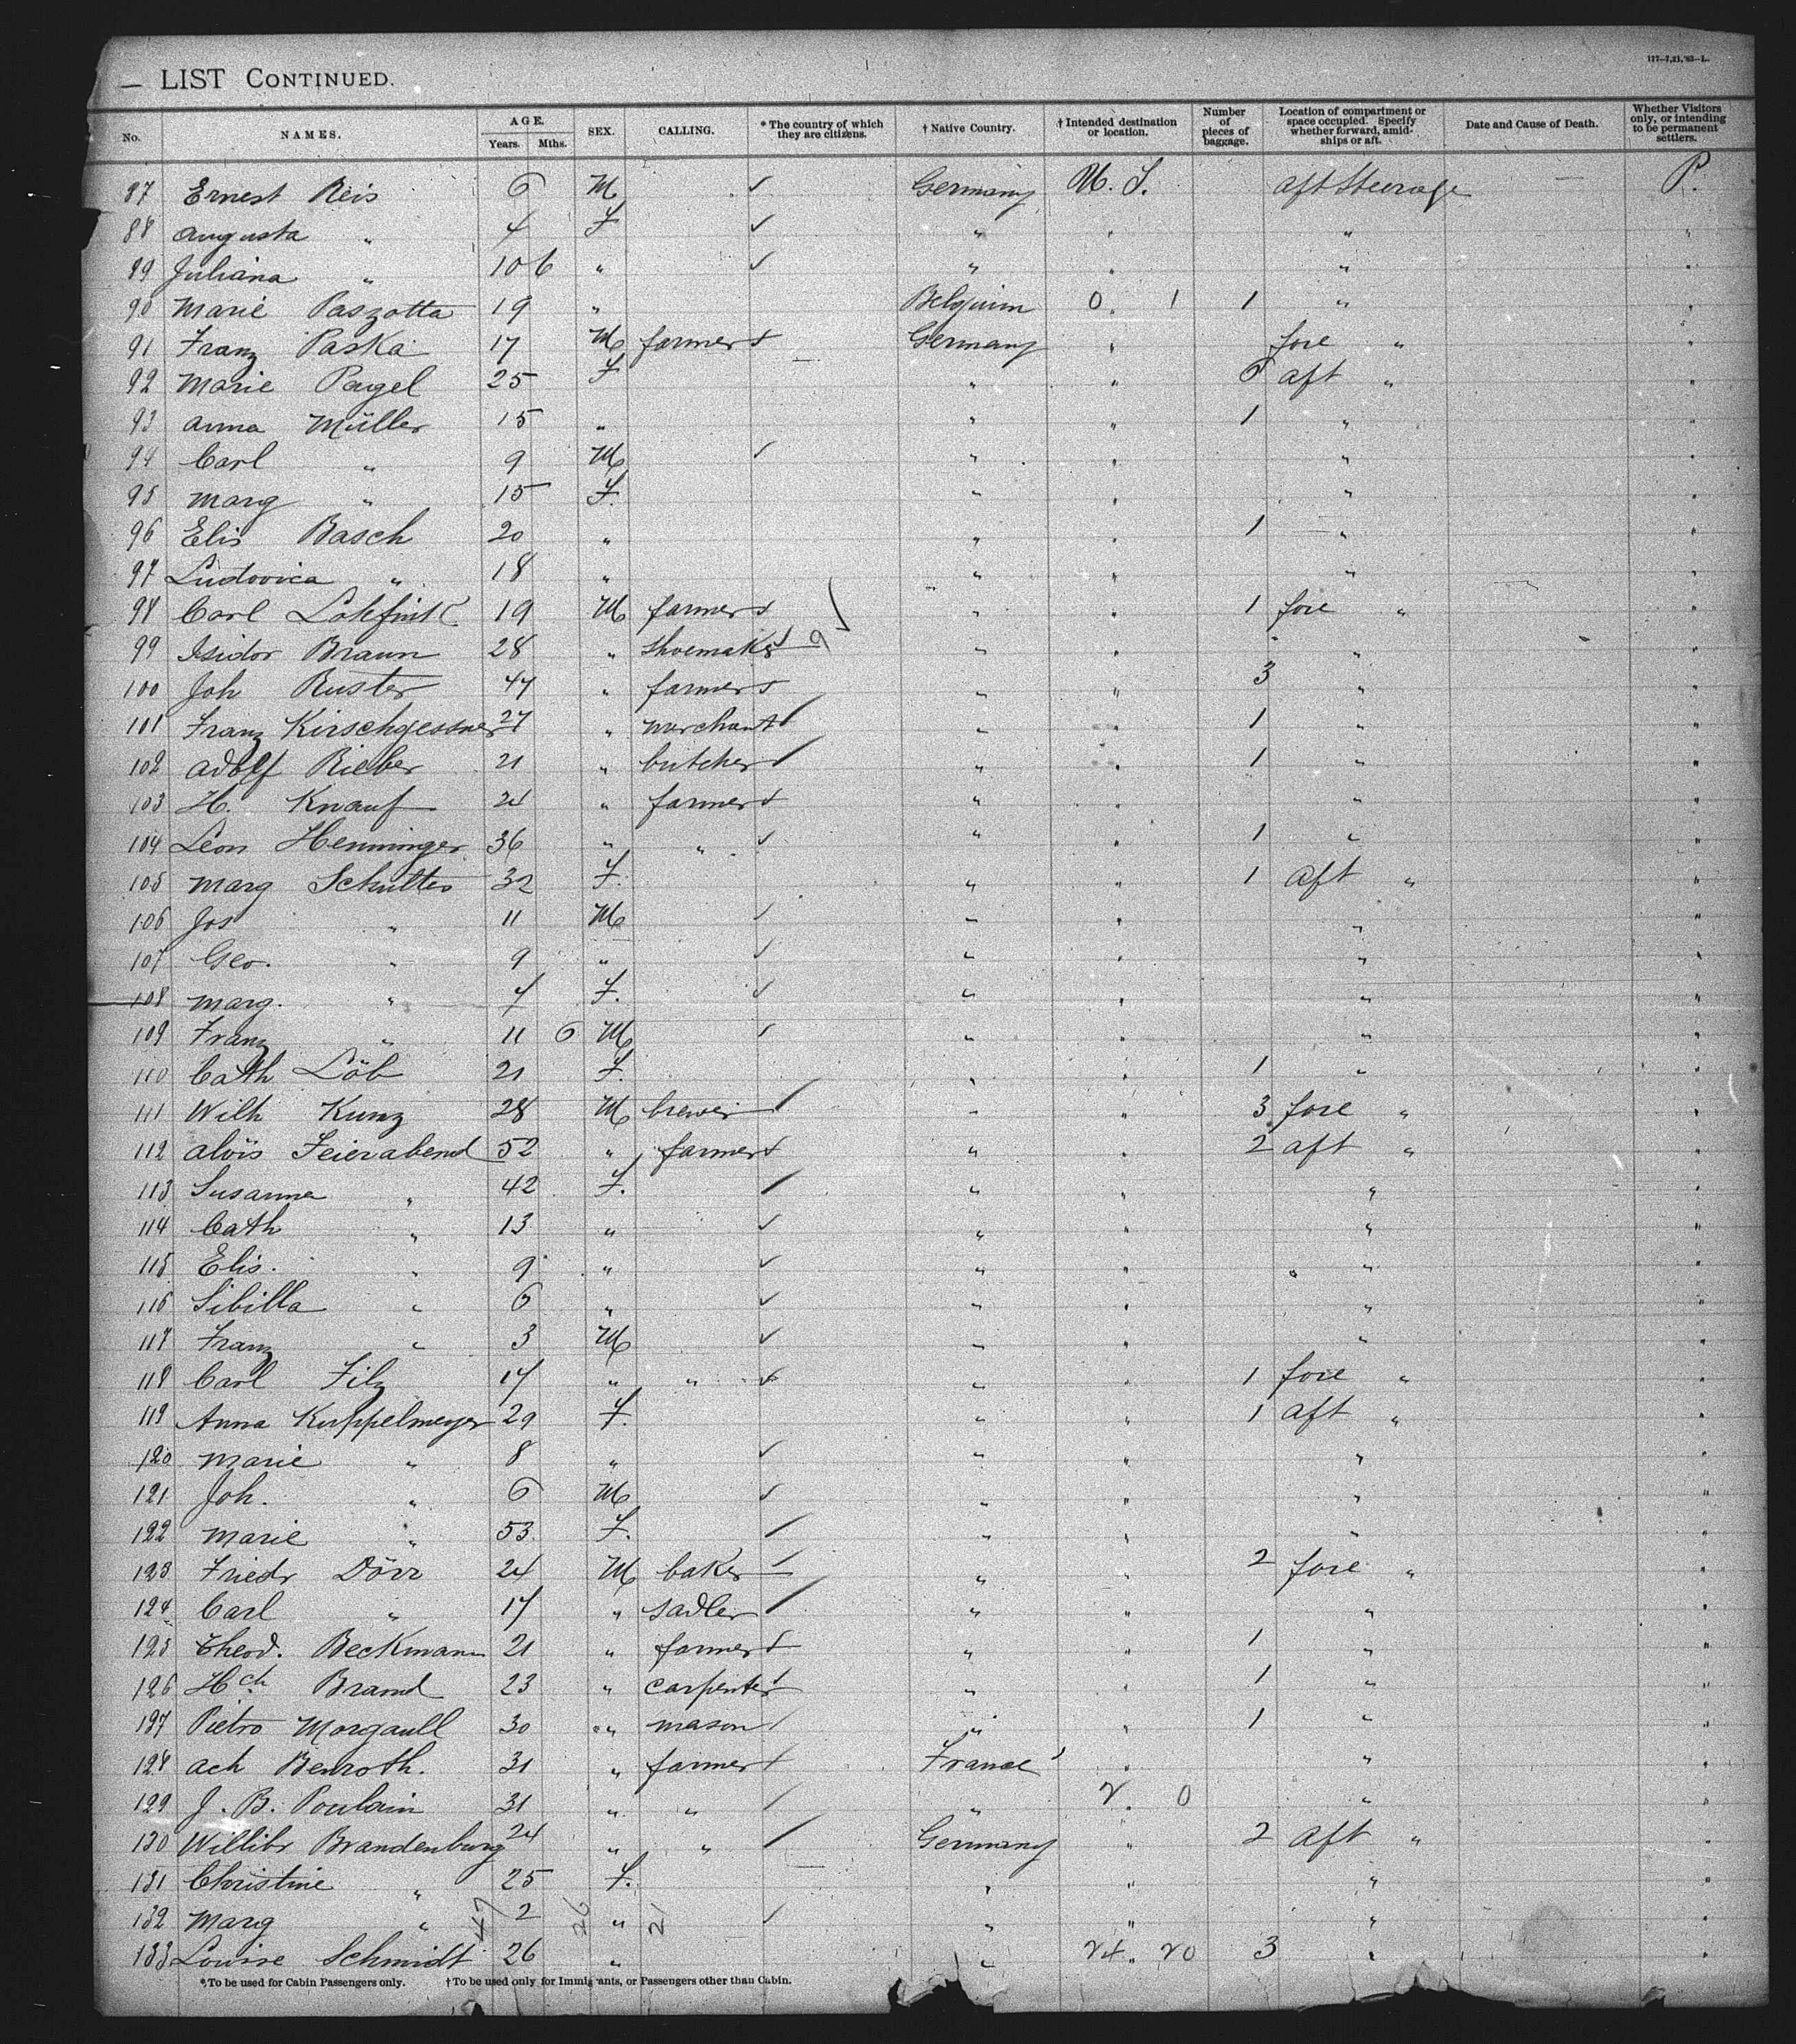 — LIST CONTINUED.
No. NAMES. AGE. Years. Mths. SEX. CALLING. *The country of which they are citizens. †Native Country. †Intended destination or location. Number of pieces of baggage. Location of compartment or space occupied. Specify whether forward, amidships or aft. Date and Cause of Death. Whether Visitors only, or intending to be permanent settlers.
87 Ernest Reis 6 M ✓ Germany U. S. aft Steerage P.
88 Augusta " 4 F ✓ " " " "
89 Juliana " 10 6 " ✓ " " " "
90 Marie Paszotta 19 " Belgium 0 1 1 " "
91 Franz Paska 17 M farmer Germany " fore " "
92 Marie Pagel 25 F " " 6 aft " "
93 Anna Müller 15 " " " 1 " "
94 Carl " 9 M ✓ " " " "
95 Marg " 15 F. " " " "
96 Elis Basch 20 " " " 1 " "
97 Ludovica " 18 " " " " "
98 Carl 19 M farmer " " 1 fore " "
99 Isidor Braun 28 " shoemaker 9 " " " "
100 Joh Ruster 47 " farmer " " 3 " "
101 Franz Kirschgessner 27 " merchant " " 1 " "
102 Adolf Rieber 21 " butcher " " 1 " "
103 H. Knauf 24 " farmer " " " "
104 Leon Henninger 36 " " ✓ " " 1 " "
105 Marg Schultes 32 F. " " 1 aft " "
106 Jos " 11 M ✓ " " " "
107 Geo. " 9 " ✓ " " " "
108 Marg. " 7 F. ✓ " " " "
109 Franz " 11 6 M ✓ " " " "
110 Cath Löb 21 F. " " 1 " "
111 Wilh Kunz 28 M brewer " " 3 fore " "
112 Alois Feierabend 52 " farmer " " 2 aft " "
113 Susanna " 42 F. " " " "
114 Cath " 13 " ✓ " " " "
115 Elis. " 9 " ✓ " " " " "
116 Sibilla " 6 " ✓ " " " "
117 Franz " 3 M ✓ " " " "
118 Carl Filz 17 " " " " 1 fore " "
119 Anna Kuppelmeyer 29 F. " " 1 aft " "
120 Marie " 8 " ✓ " " " "
121 Joh. " 6 M ✓ " " " "
122 Marie " 53 F. " " " "
123 Friedr Dörr 24 M baker " " 2 fore " "
124 Carl " 17 " sadler " " " "
125 Theod. Beckmann 21 " farmer " " 1 " "
126 Hch Brand 23 " carpenter " " 1 " "
127 Pietro Morgaull 30 " mason " " 1 " "
128 Ach Benroth. 31 " farmer France " " "
129 J. B. Poulain 31 " " " 2. 0 " "
130 Willibr Brandenburg 24 " " Germany " 2 aft " "
131 Christine " 25 F. " " " "
132 Marg " 2 " ✓ " " " "
47 26 21
133 Louise Schmidt 26 " " 24. 20 3 " "
*To be used for Cabin Passengers only. †To be used only for Immigrants, or Passengers other than Cabin.